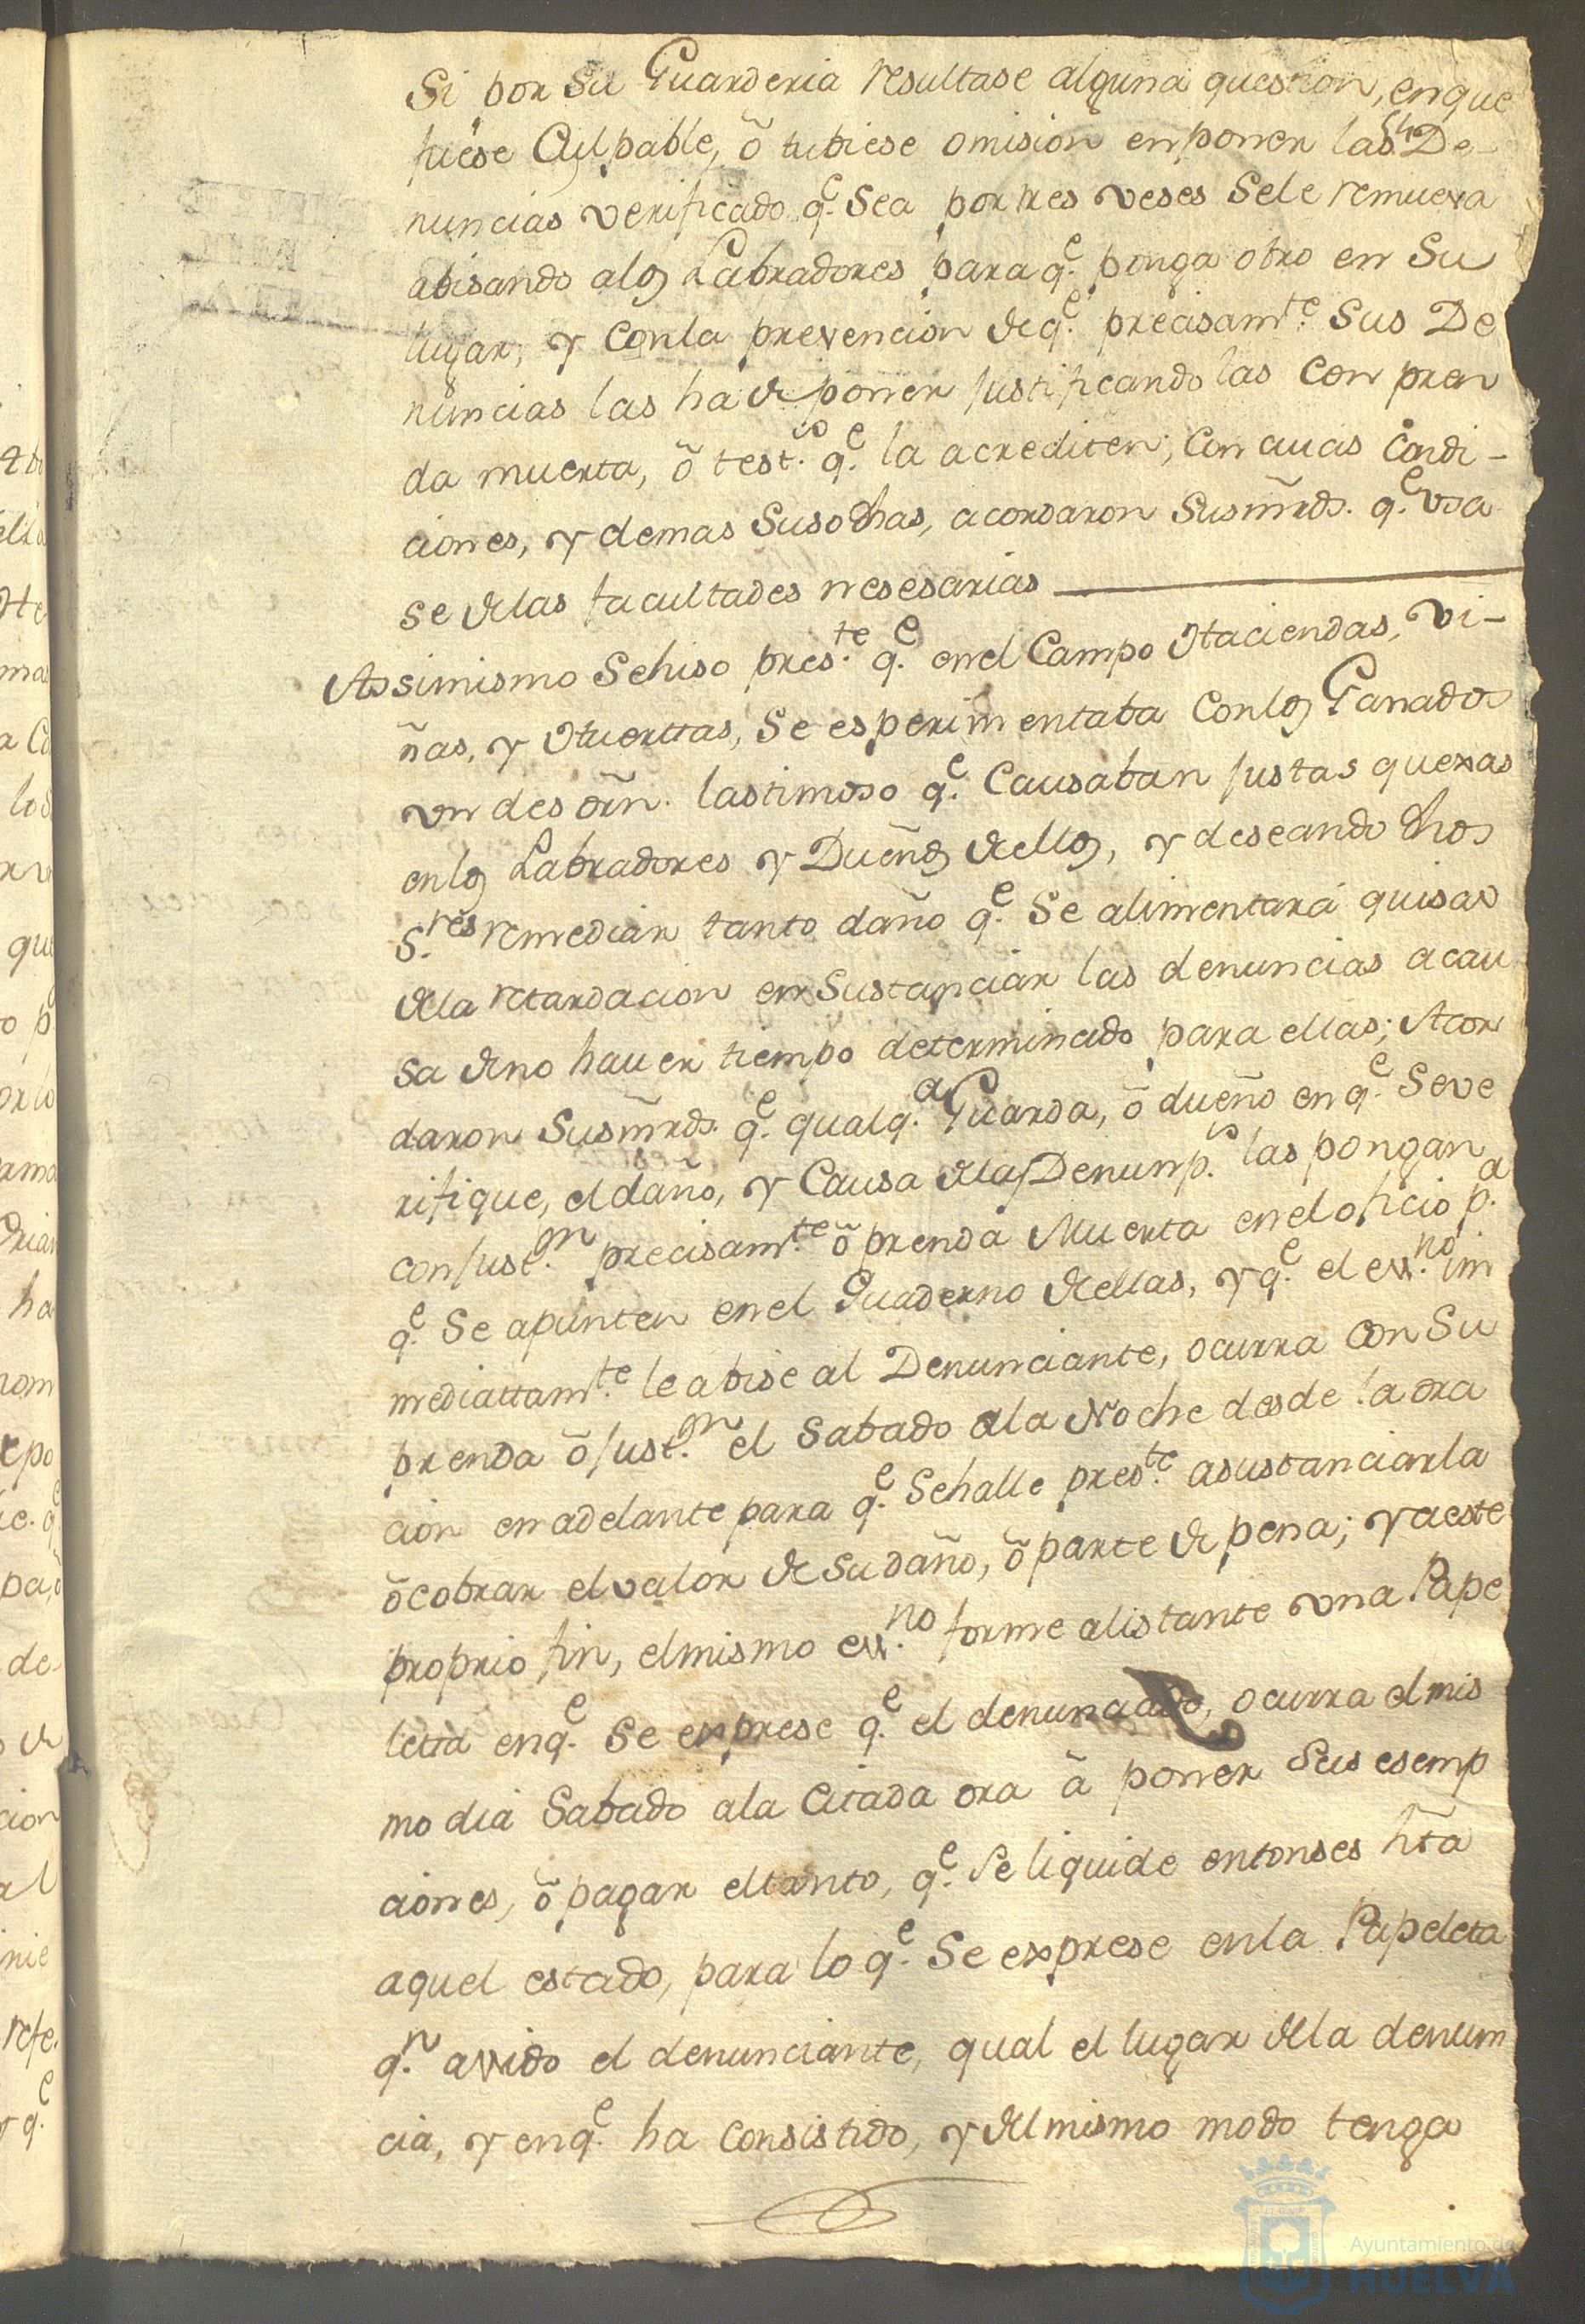 Si por su Guarderia resultase alguna question, en que
fuese Culpable, ō tubiese omision en poner las De-
nuncias verificado q.e Sea por tres veses Sele remueva
abisando alos Labradores para q.e ponga otro en Su
lugar, y con la prevencion de q.e precisam.te Sus De
nuncias las ha de poner justificandolas con pren
da muerta, ō test.o q.e la acrediten; con cuias Condi-
ciones, y demas Susodhas, acordaron Susm̃rds. q.e usa
se delas facultades nesesarias
Assimismo Sehiso pres.te q.e en el Campo Haciendas, Vi-
ñas, y Huerttas, Se esperimentaba Conlos Ganados
un des orñ. lastimoso q.e Causaban justas quexas
enlos Labradores y Dueños dellos, y deseando dhos
S.res remediar tanto daño q.e Se alimentará quisas
dela retardacion en Sustanciar las denuncias acau
sa deno hauer tiempo determinado para ellas; Acor
daron Susm̃rds. q.e qualq.a Guarda, ō dueño en q.e Seve
rifique, el daño, y Causa delas Denunp.s las pongan
con just.on precisam.te ō prenda Muerta en el oficio p.a
q.e Se apunten en el Quaderno dellas, y q.e el ess.no im
mediattam.te le abise al Denunciante, ocurra con Su
prenda ō just.on el Sabado ala Noche desde la ora
cion en adelante para q.e Sehalle pres.te asustanciarla
ō cobrar el valor de su daño, ō parte de pena; y aeste
proprio fin, elmismo ess.no forme alistante una Pape
letta en q.e Se exprese q.e el denunciado, ocurra el mis
mo dia Sabado ala Citada ora ā poner Sus esemp
ciones, ō pagar eltanto, q.e Se liquide entonses hta
aquel estado, para lo q.e Se exprese enla Papeleta
q.n avido el denunciante, qual el lugar dela denun
cia, y en q.e ha consistido, y del mismo modo tenga
Ayuntamiento de
HUELVA